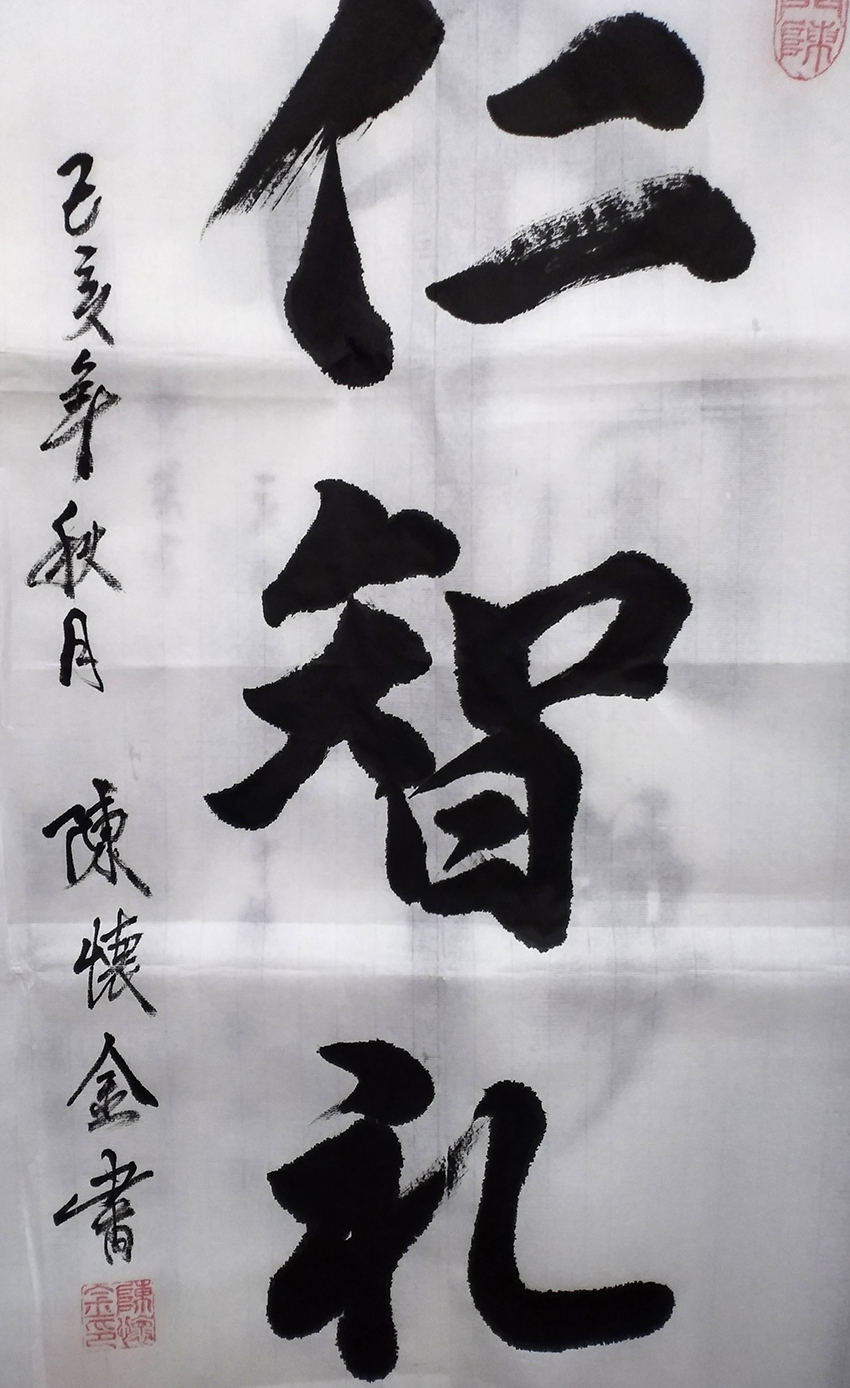 仁智礼
己亥年秋月 陳懷金書
陳懷
金印